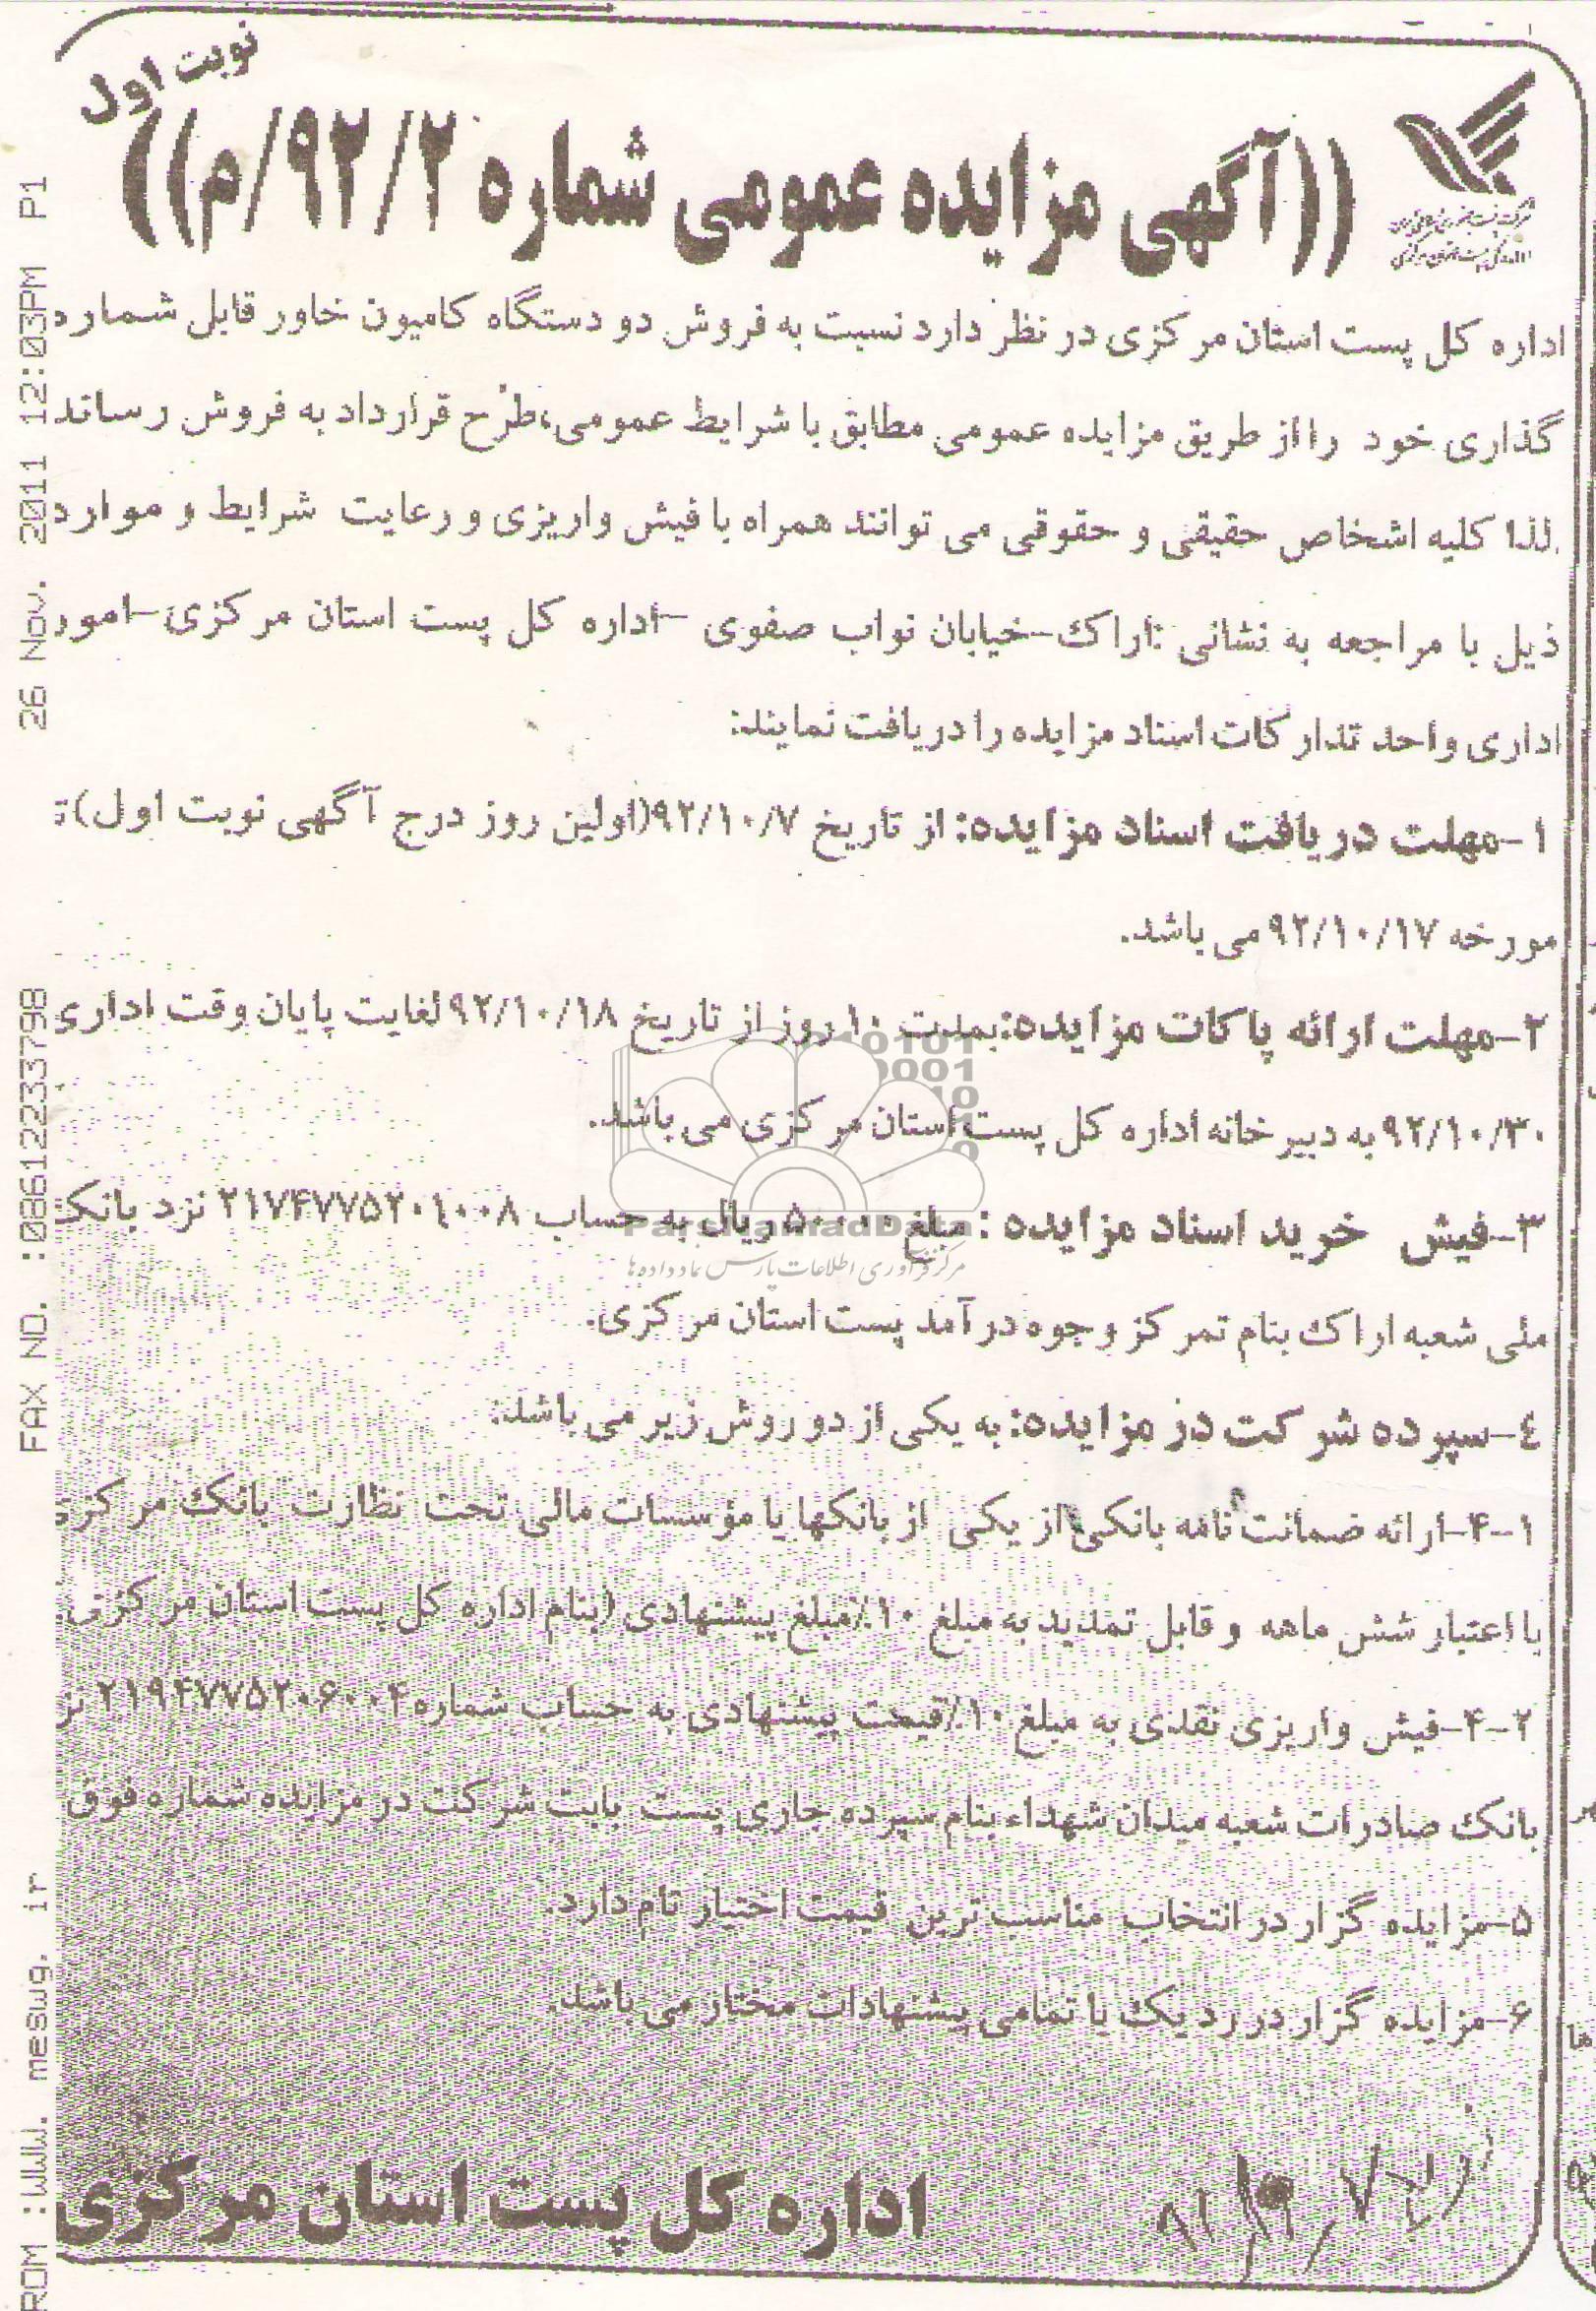 نوبت اول
((آگهی مزایده عمومی شماره ۹۲/۲/م))
اداره کل پست استان مرکزی در نظر دارد نسبت به فروش دو دستگاه کامیون خاور قابل شماره
گذاری خود را از طریق مزایده عمومی مطابق با شرایط عمومی،طرح قرارداد به فروش رساند
.لذا کلیه اشخاص حقیقی و حقوقی می توانند همراه با فیش واریزی و رعایت شرایط و موارد
ذیل با مراجعه به نشانی :اراک-خیابان نواب صفوی -اداره کل پست استان مرکزی-امور
اداری واحد تدارکات اسناد مزایده را دریافت نمایند:
۱-مهلت دریافت اسناد مزایده: از تاریخ ۹۲/۱۰/۷(اولین روز درج آگهی نوبت اول)
مورخه ۹۲/۱۰/۱۷ می باشد.
۲-مهلت ارائه پاکات مزایده:بمدت ۱۰ روز از تاریخ ۹۲/۱۰/۱۸ لغایت پایان وقت اداری
۹۲/۱۰/۳۰ به دبیرخانه اداره کل پست استان مرکزی می باشد.
۳-فیش خرید اسناد مزایده : مبلغ ریال به حساب ۲۱۷۴۷۷۵۲۰۱۰۰۸ نزد بانک
ملی شعبه اراک بنام تمرکز وجوه درآمد پست استان مرکزی.
٤-سپرده شرکت در مزایده: به یکی از دو روش زیر می باشد:
۴-۱-ارائه ضمانت نامه بانکی از یکی از بانکها یا مؤسسات مالی تحت نظارت بانک مرکزی
با اعتبار شش ماهه و قابل تمدید به مبلغ ۱۰٪مبلغ پیشنهادی (بنام اداره کل پست استان مرکزی)
۴-۲-فیش واریزی نقدی به مبلغ ۱۰٪قیمت پیشنهادی به حساب شماره ۲۱۹۴۷۷۵۲۰۶۰۰۲ نز
بانک صادرات شعبه میدان شهداء بنام سپرده جاری پست بابت شرکت در مزایده شماره فوق
۵-مزایده گزار در انتخاب مناسب ترین قیمت اختیار تام دارد.
۶-مزایده گزار در رد یک یا تمامی پیشنهادات مختار می باشد.
اداره کل پست استان مرکزی
ROM :WWW. meswg. ir FAX NO. :08612233798 26 Nov. 2011 12:03PM P1
ParsNamadData
مرکز فرآوری اطلاعات پارس نماد داده ها